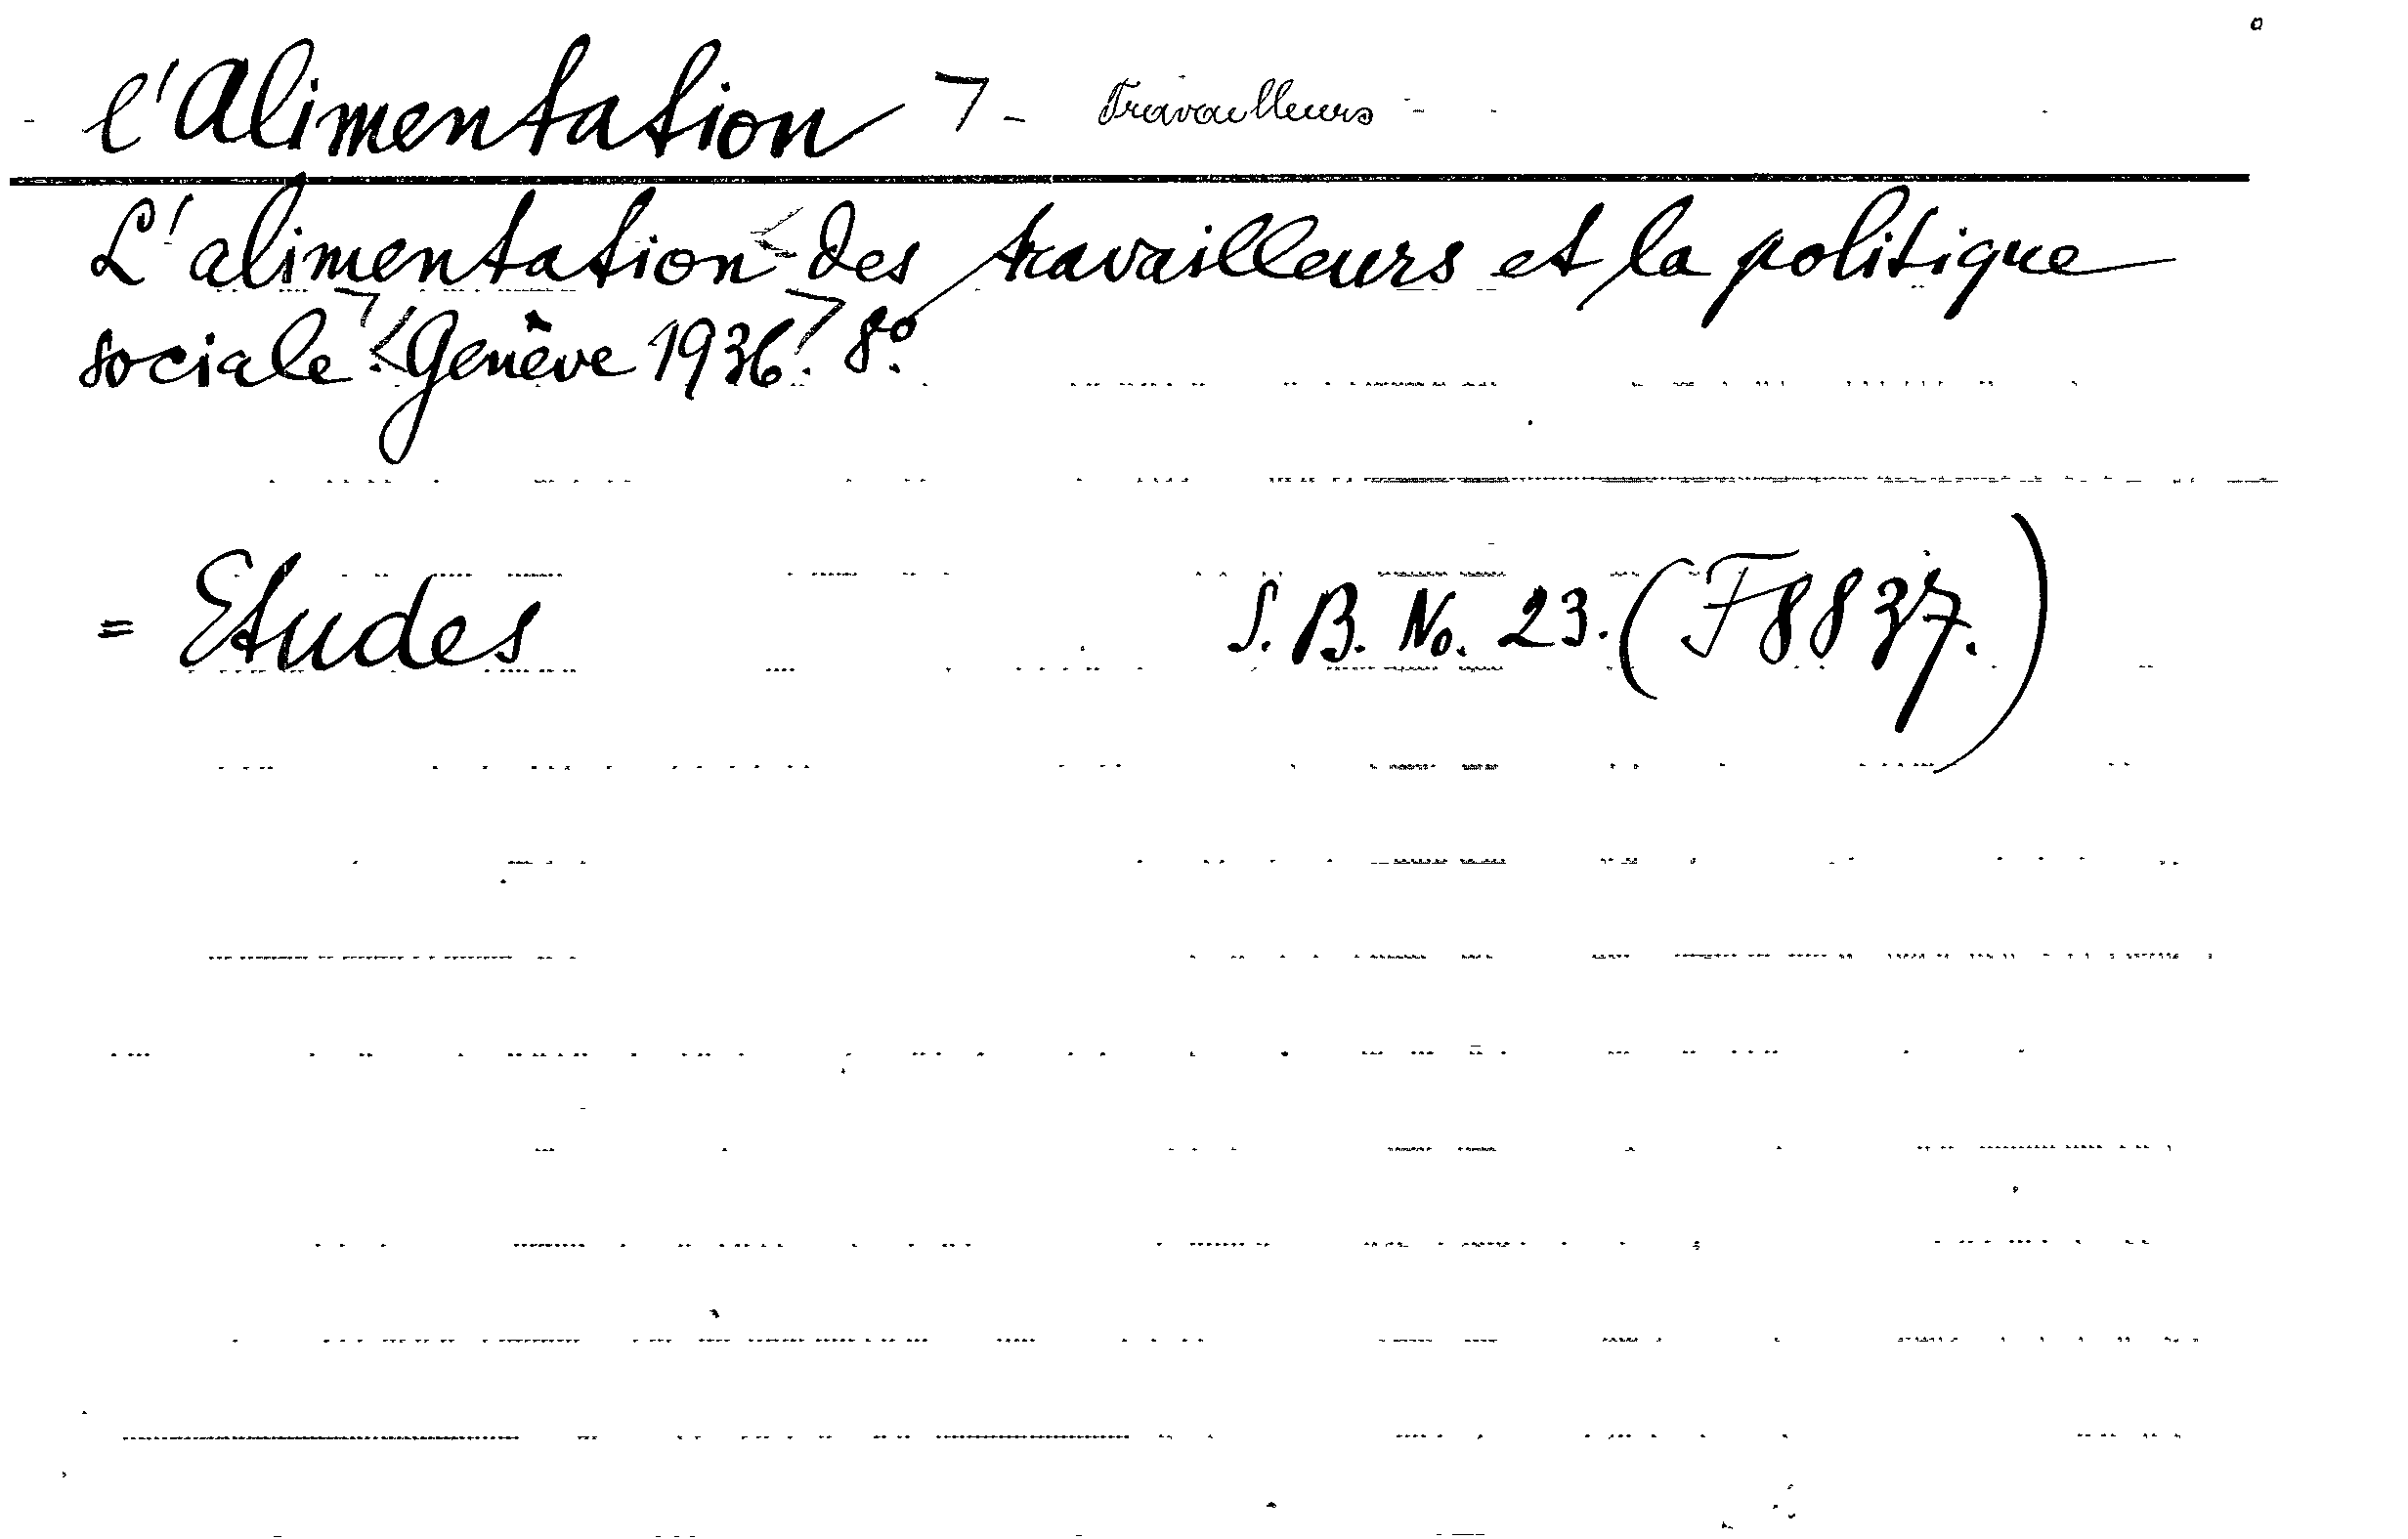 l'Alimentation ⌝ - Travailleurs
L'alimentation des travailleurs et la politique
sociale⌝. <Genève 1936⌝. 8º.
= Etudes S. B. No. 23. (F8837.)